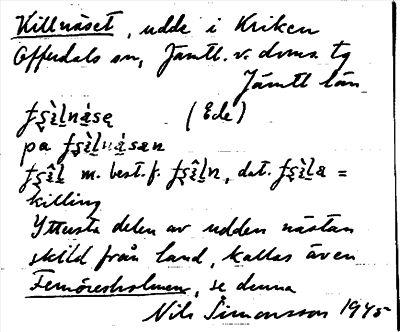 Killnäset, udde i Kriken
Offerdals sn, Jämtl. v. doms. tg
Jämtl län
fşìlnásę (Ede)
pa fşìlnásæn
fşîl m. best. f. fşîln, dat. fşìla =
killing
Yttersta delen av udden nästan
skild från land, kallas även
Femöresholmen, se denna
Nils Simonsson 1945